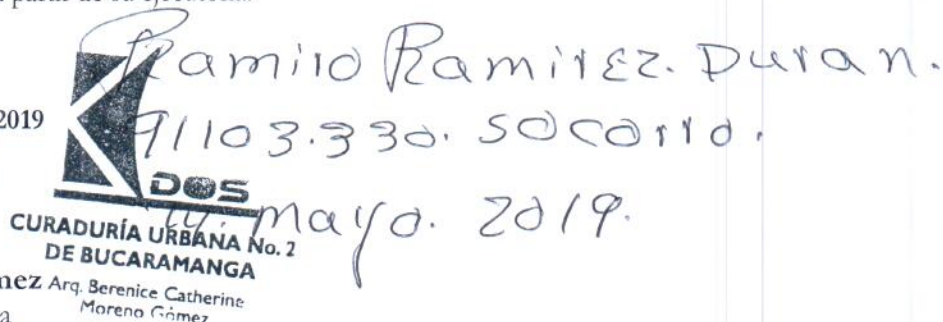 Ramiro Ramirez. Duran.
2019
91103.330. Socorro.
DOS
14. Mayo. 2019.
CURADURÍA URBANA No. 2
DE BUCARAMANGA
nez Arq. Berenice Catherine
a Moreno Gómez